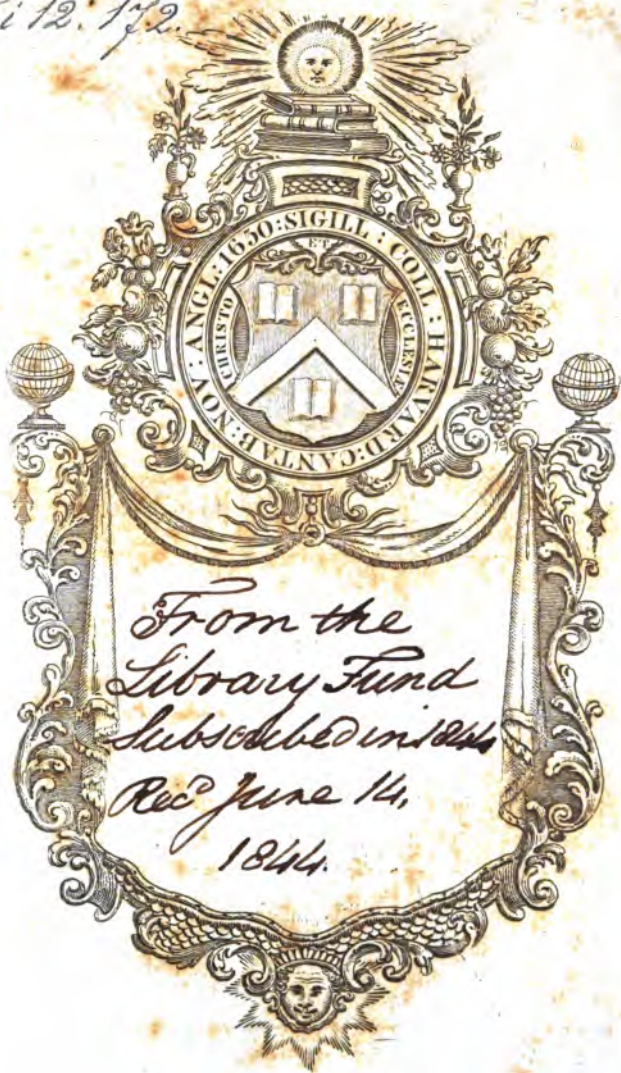 i 12. 172.
SIGILL : COLL : HARVARD : CANTAB : NOV : ANGL : 1650 :
CHRISTO ET ECCLESIÆ
From the
Library Fund
Subscribed in 1844
Rec.d June 14,
1844.